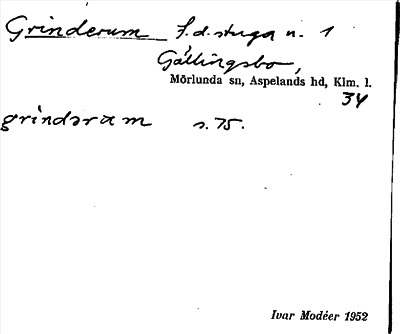 Grinderum f.d. stuga u. 1
Gällingsbo,
Mörlunda sn, Aspelands hd, Klm. l.
34
grindəram s. 75.
Ivar Modéer 1952